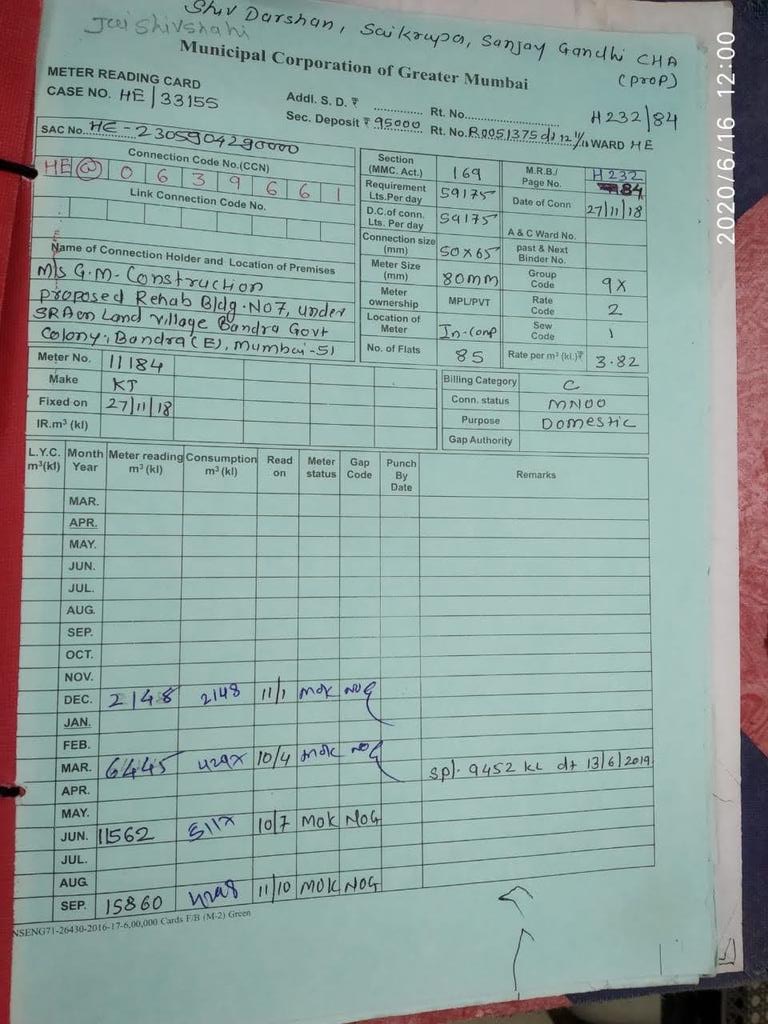 Shiv Darshan, Saikrupa, Sanjay Gandhi CHA
Jai Shivshahi
(PROP)
Municipal Corporation of Greater Mumbai
METER READING CARD
CASE NO. HE/33155
Addl. S. D. ₹ ............. Rt. No..............
H232/84
Sec. Deposit ₹ 95000 Rt. No. R0051375 dt 12/11 WARD HE
SAC No. HE-2305904290000
Connection Code No.(CCN)
HE @ 0 6 3 9 6 6 1
Link Connection Code No.
Name of Connection Holder and Location of Premises
M/s G.M. Construction
proposed Rehab Bldg. NO7, under
SRA on Land village Bandra Govt
Colony, Bandra (E), Mumbai-51
Section (MMC. Act.) 169 M.R.B./ Page No. H 232 84
Requirement Lts.Per day 59175 Date of Conn 27/11/18
D.C.of conn. Lts. Per day 59175 A & C Ward No.
Connection size (mm) 50X65 past & Next Binder No.
Meter Size (mm) 80mm Group Code 9X
Meter ownership MPL/PVT Rate Code 2
Location of Meter In-comp Sew Code 1
No. of Flats 85 Rate per m³ (kl.)₹ 3.82
Meter No. 11184
Make KT
Fixed on 27/11/18
IR.m³ (kl)
Billing Category C
Conn. status MNOO
Purpose Domestic
Gap Authority
L.Y.C. m³(kl) Month Year Meter reading m³ (kl) Consumption m³ (kl) Read on Meter status Gap Code Punch By Date Remarks
MAR.
APR.
MAY.
JUN.
JUL.
AUG.
SEP.
OCT.
NOV.
DEC. 2148 2148 11/1 MOK NOG
JAN.
FEB.
MAR. 6445 10/4 MOK NOG spl. 9452 KL dt 13/6/2019
APR.
MAY.
JUN. 11562 10/7 MOK NOG
JUL.
AUG.
SEP. 15860 11/10 MOK NOG
NSENG71-26430-2016-17-6,00,000 Cards F/B (M-2) Green
2020/6/16 12:00